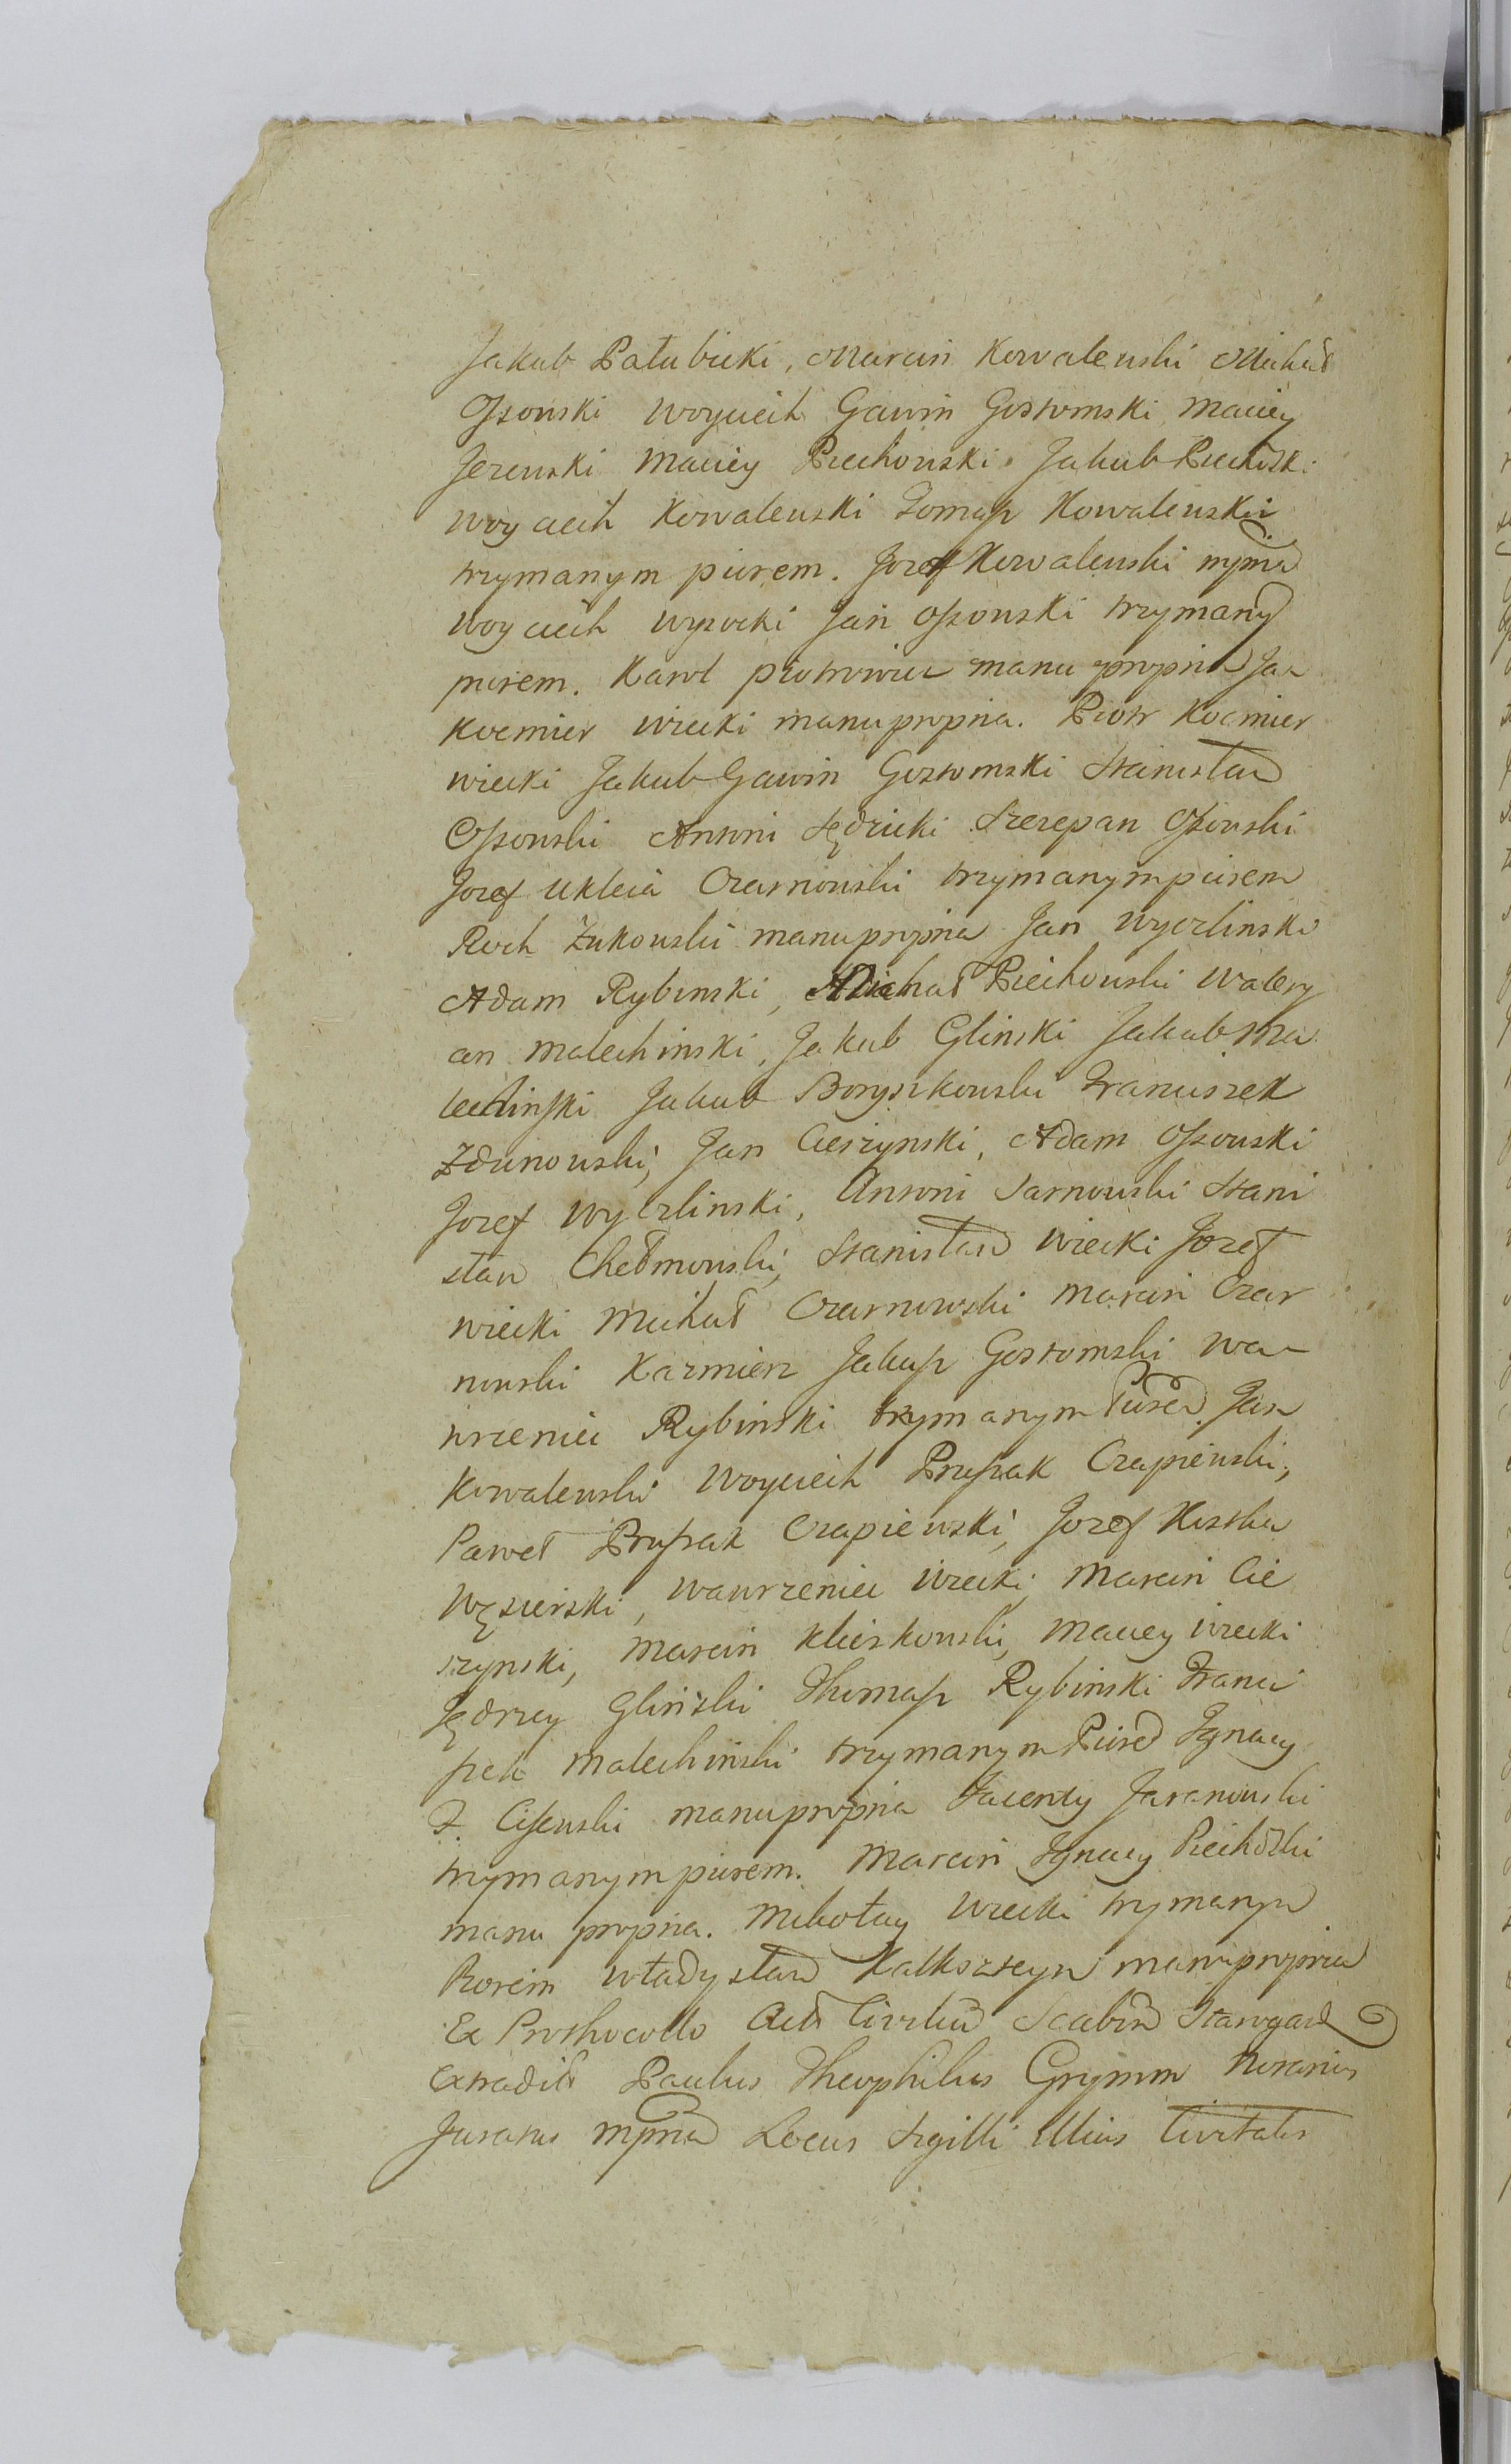 Jakub Pałubicki, Marcin Kowalewski Michał
Ossowski Woyciech Gawin Gostomski, Maciey
Jezewski Maciey Piechowski. Jakub Piechowski
Woyciech Kowalewski Tomasz Kowalewski
trzymanym piorem. Jozef Kowalewski mpria
Woyciech Wysocki Jan Ossowski trzymanym
piorem. Karol Piotrowicz manu propria Jan
Kocmier Wiecki manu propria. Piotr Kocmier
Wiecki Jakub Gawin Gostomski Stanisław
Ossowski Antoni Sędzicki Szczepan Ossowski
Jozef Ukleia Czarnowski trzymanym piorem
Roch Zukowski manu propria Jan Wyczlinski
Adam Rybinski, Michał Piechowski Walery
an Malechinski, Jakub Glinski Jakub Ma
lechinski Jakub Boryszkowski Franciszek
Zdunowski, Jan Cieszynski, Adam Ossowski
Jozef Wyczlinski, Antoni Tarnowski Stani
sław Chełmowski, Stanisław Wiecki Jozef
Wiecki Michał Czarnowski Marcin Czar
nowski Kazmierz Jakup Gostomski Wa
wrzeniec Rybinski trzymanym Piorem Jan
Kowalewski Woyciech Prussak Czapiewski,
Paweł Prussak Czapiewski, Jozef Kostka
Węsierski, Wawrzeniec Wiecki, Marcin Cie
szynski, Marcin Kliczkowski, Maciey Wiecki
Jędrzey Glinski Thomasz Rybinski Franci
szek Malechinski trzymanym Piorem Ignacy
F. Cissewski manu propria Jacenty Jaranowski
trzymanym piorem. Marcin Ignacy Piechowski
manu propria. Mikołay Wiecki trzymanym
Piorem Władysław Kalkszteyn manu propria
Ex Prothocollo Act Civilium Scabin Starogard
Extradit Paulus Theophilus Grymm Notarius
Juratus mpria Locus Sigilli Illius Civitatis